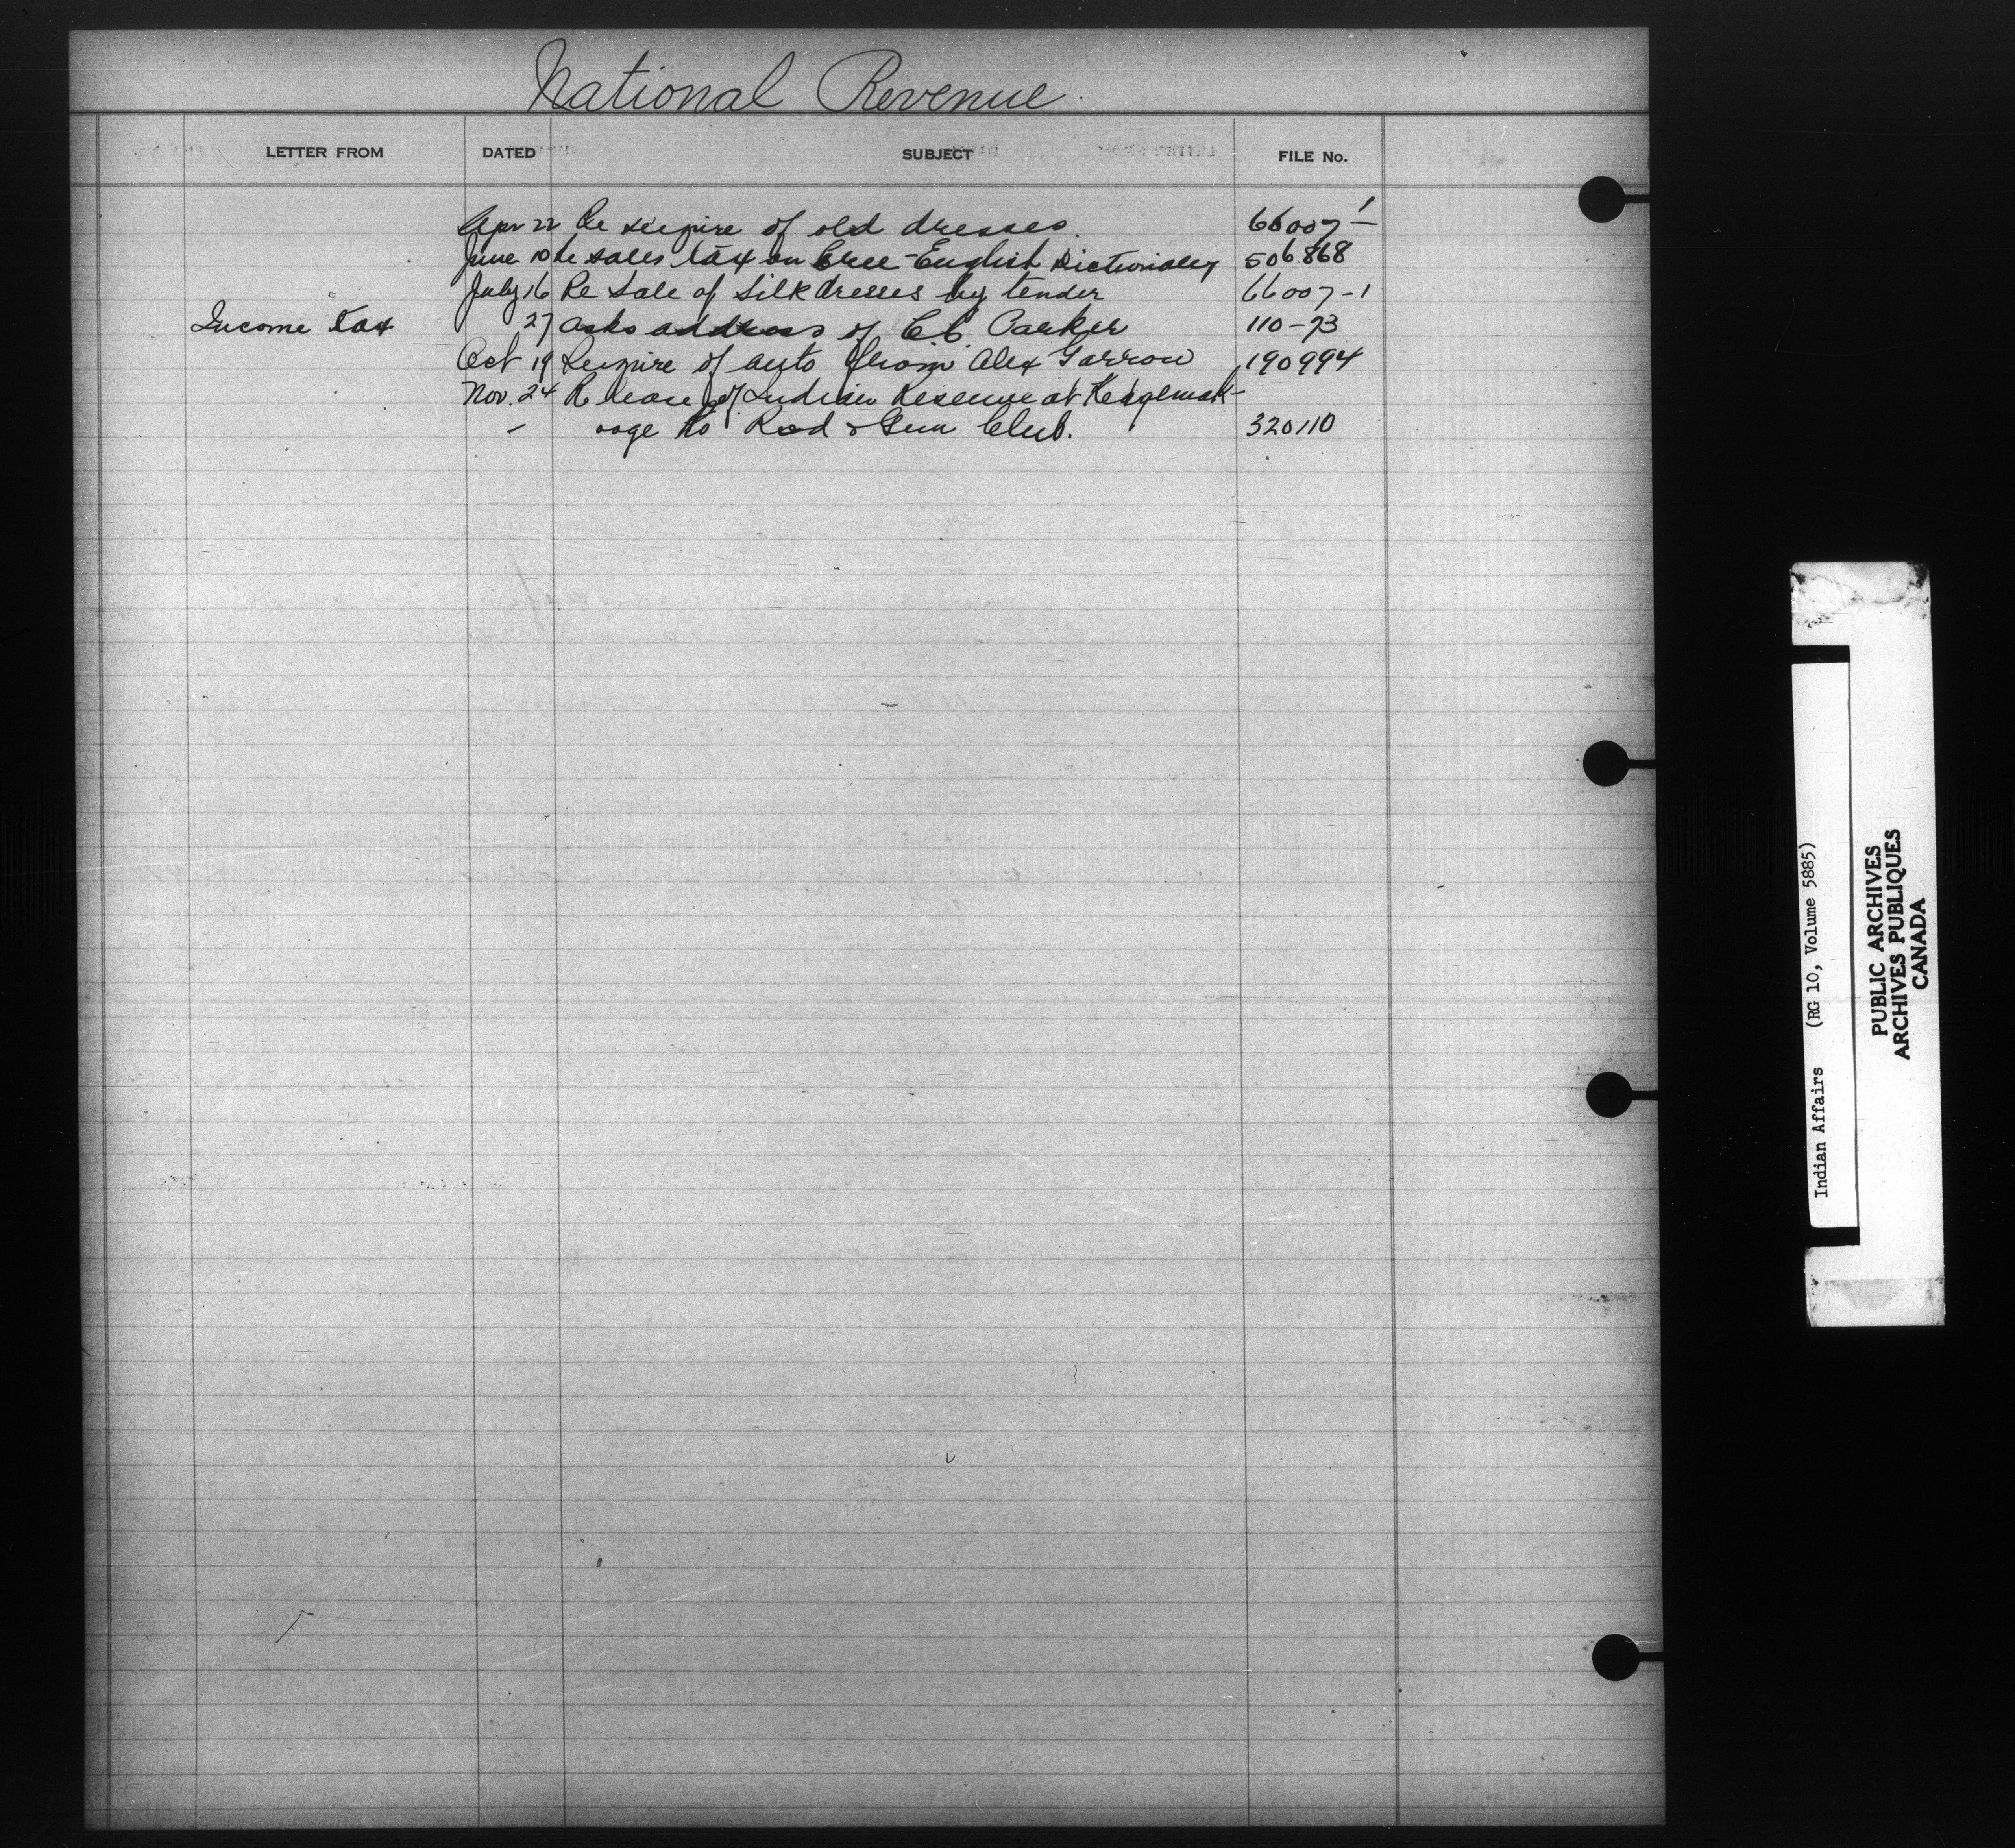 National Revenue.
LETTER FROM DATED SUBJECT FILE No.
Apr 22 Re seizure of old dresses. 66007-1
June 10 Re sales tax on Cree-English Dictionary 506868
July 16 Re Sale of silk dresses by tender 66007-1
Income Tax 27 asks address of C.C. Parker 110-73
Oct 19 Seizure of auto from Alex Garrow 190994
Nov. 24 Re lease of Indian Reserve at
ooge to Rod & Gun Club. 320110
Indian Affairs (RG 10, Volume 5885)
PUBLIC ARCHIVES
ARCHIVES PUBLIQUES
CANADA